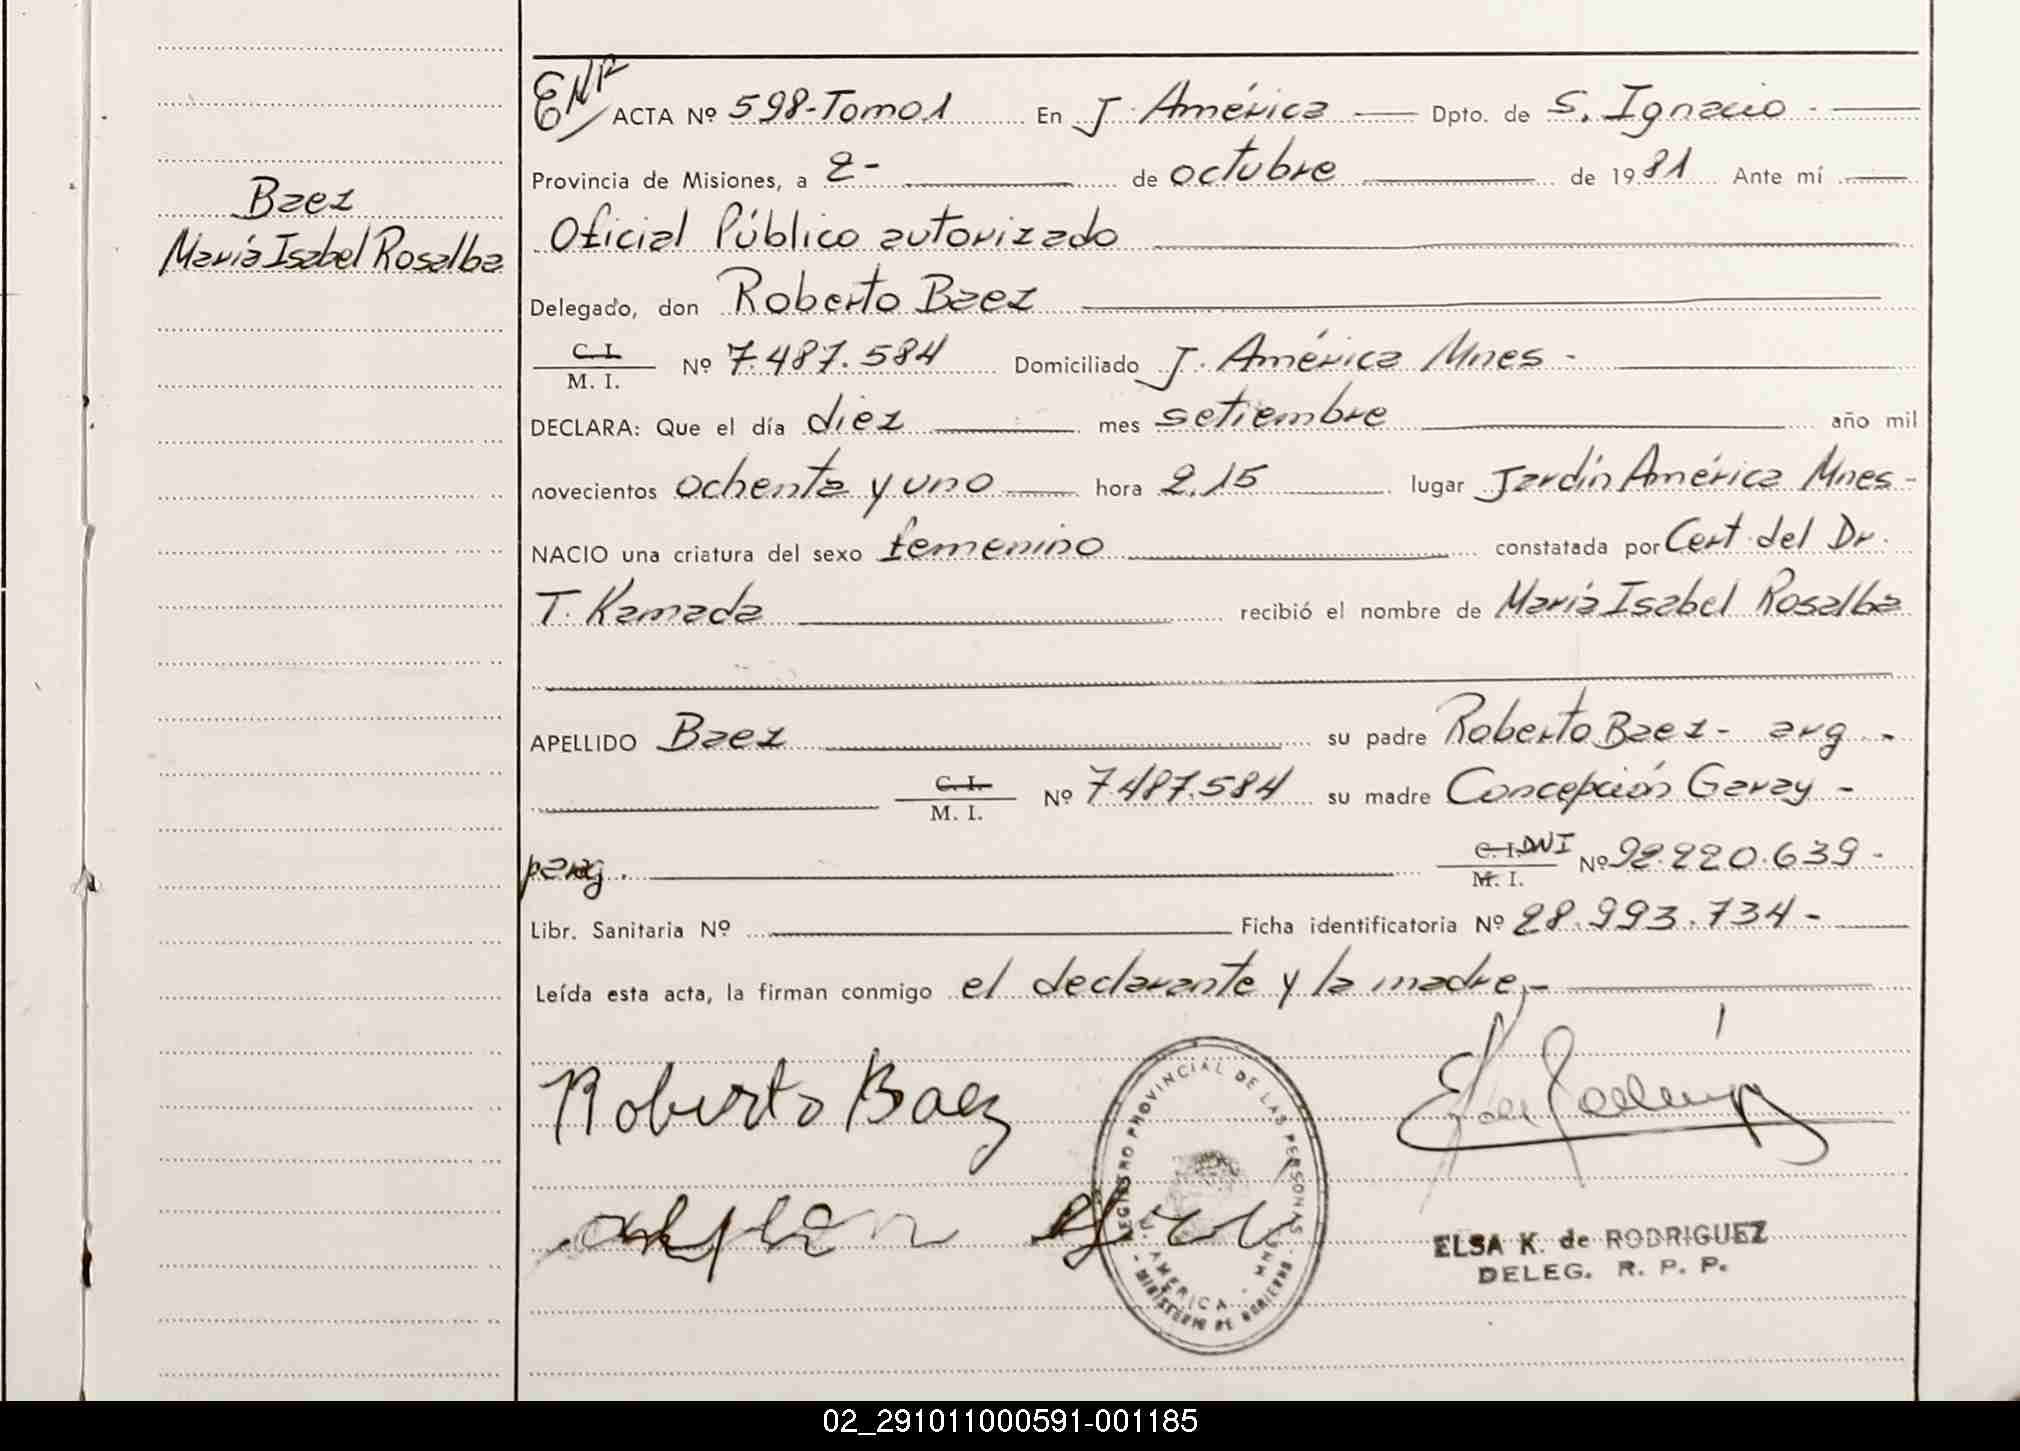 Baez
María Isabel Rosalba
ENR ACTA Nº 598-Tomo 1 En J. América Dpto. de S. Ignacio -
Provincia de Misiones, a 2- de octubre de 1981 Ante mí
Oficial Público autorizado
Delegado, don Roberto Baez
C. I. / M. I. Nº 7.487.584 Domiciliado J. América Mnes -
DECLARA: Que el día diez mes setiembre año mil
novecientos ochenta y uno hora 2.15 lugar Jardín América Mnes -
NACIO una criatura del sexo femenino constatada por Cert. del Dr.
T. Kamada recibió el nombre de María Isabel Rosalba
APELLIDO Baez su padre Roberto Baez - arg. -
C. I. / M. I. Nº 7.487.584 su madre Concepción Garay -
parag. C. I. DNI / M. I. Nº 92.220.639 -
Libr. Sanitaria Nº Ficha identificatoria Nº 28.993.734 -
Leída esta acta, la firman conmigo el declarante y la madre,-
Roberto Baez
REGISTRO PROVINCIAL DE LAS PERSONAS
J. AMERICA - MNES
- MINISTERIO DE GOBIERNO -
ELSA K. de RODRIGUEZ
DELEG. R. P. P.
02_291011000591-001185